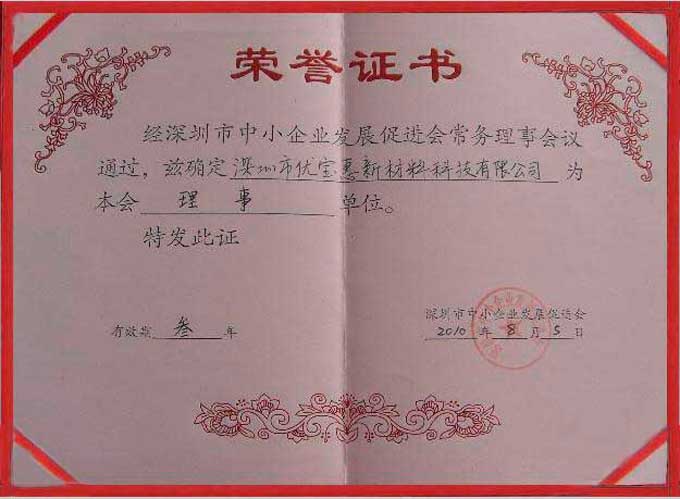 荣誉证书
经深圳市中小企业发展促进会常务理事会议
通过，兹确定 深圳市优宝惠新材料科技有限公司 为
本会 理事 单位。
特发此证
深圳市中小企业发展促进会
有效期 叁 年
2010 年 8 月 5 日